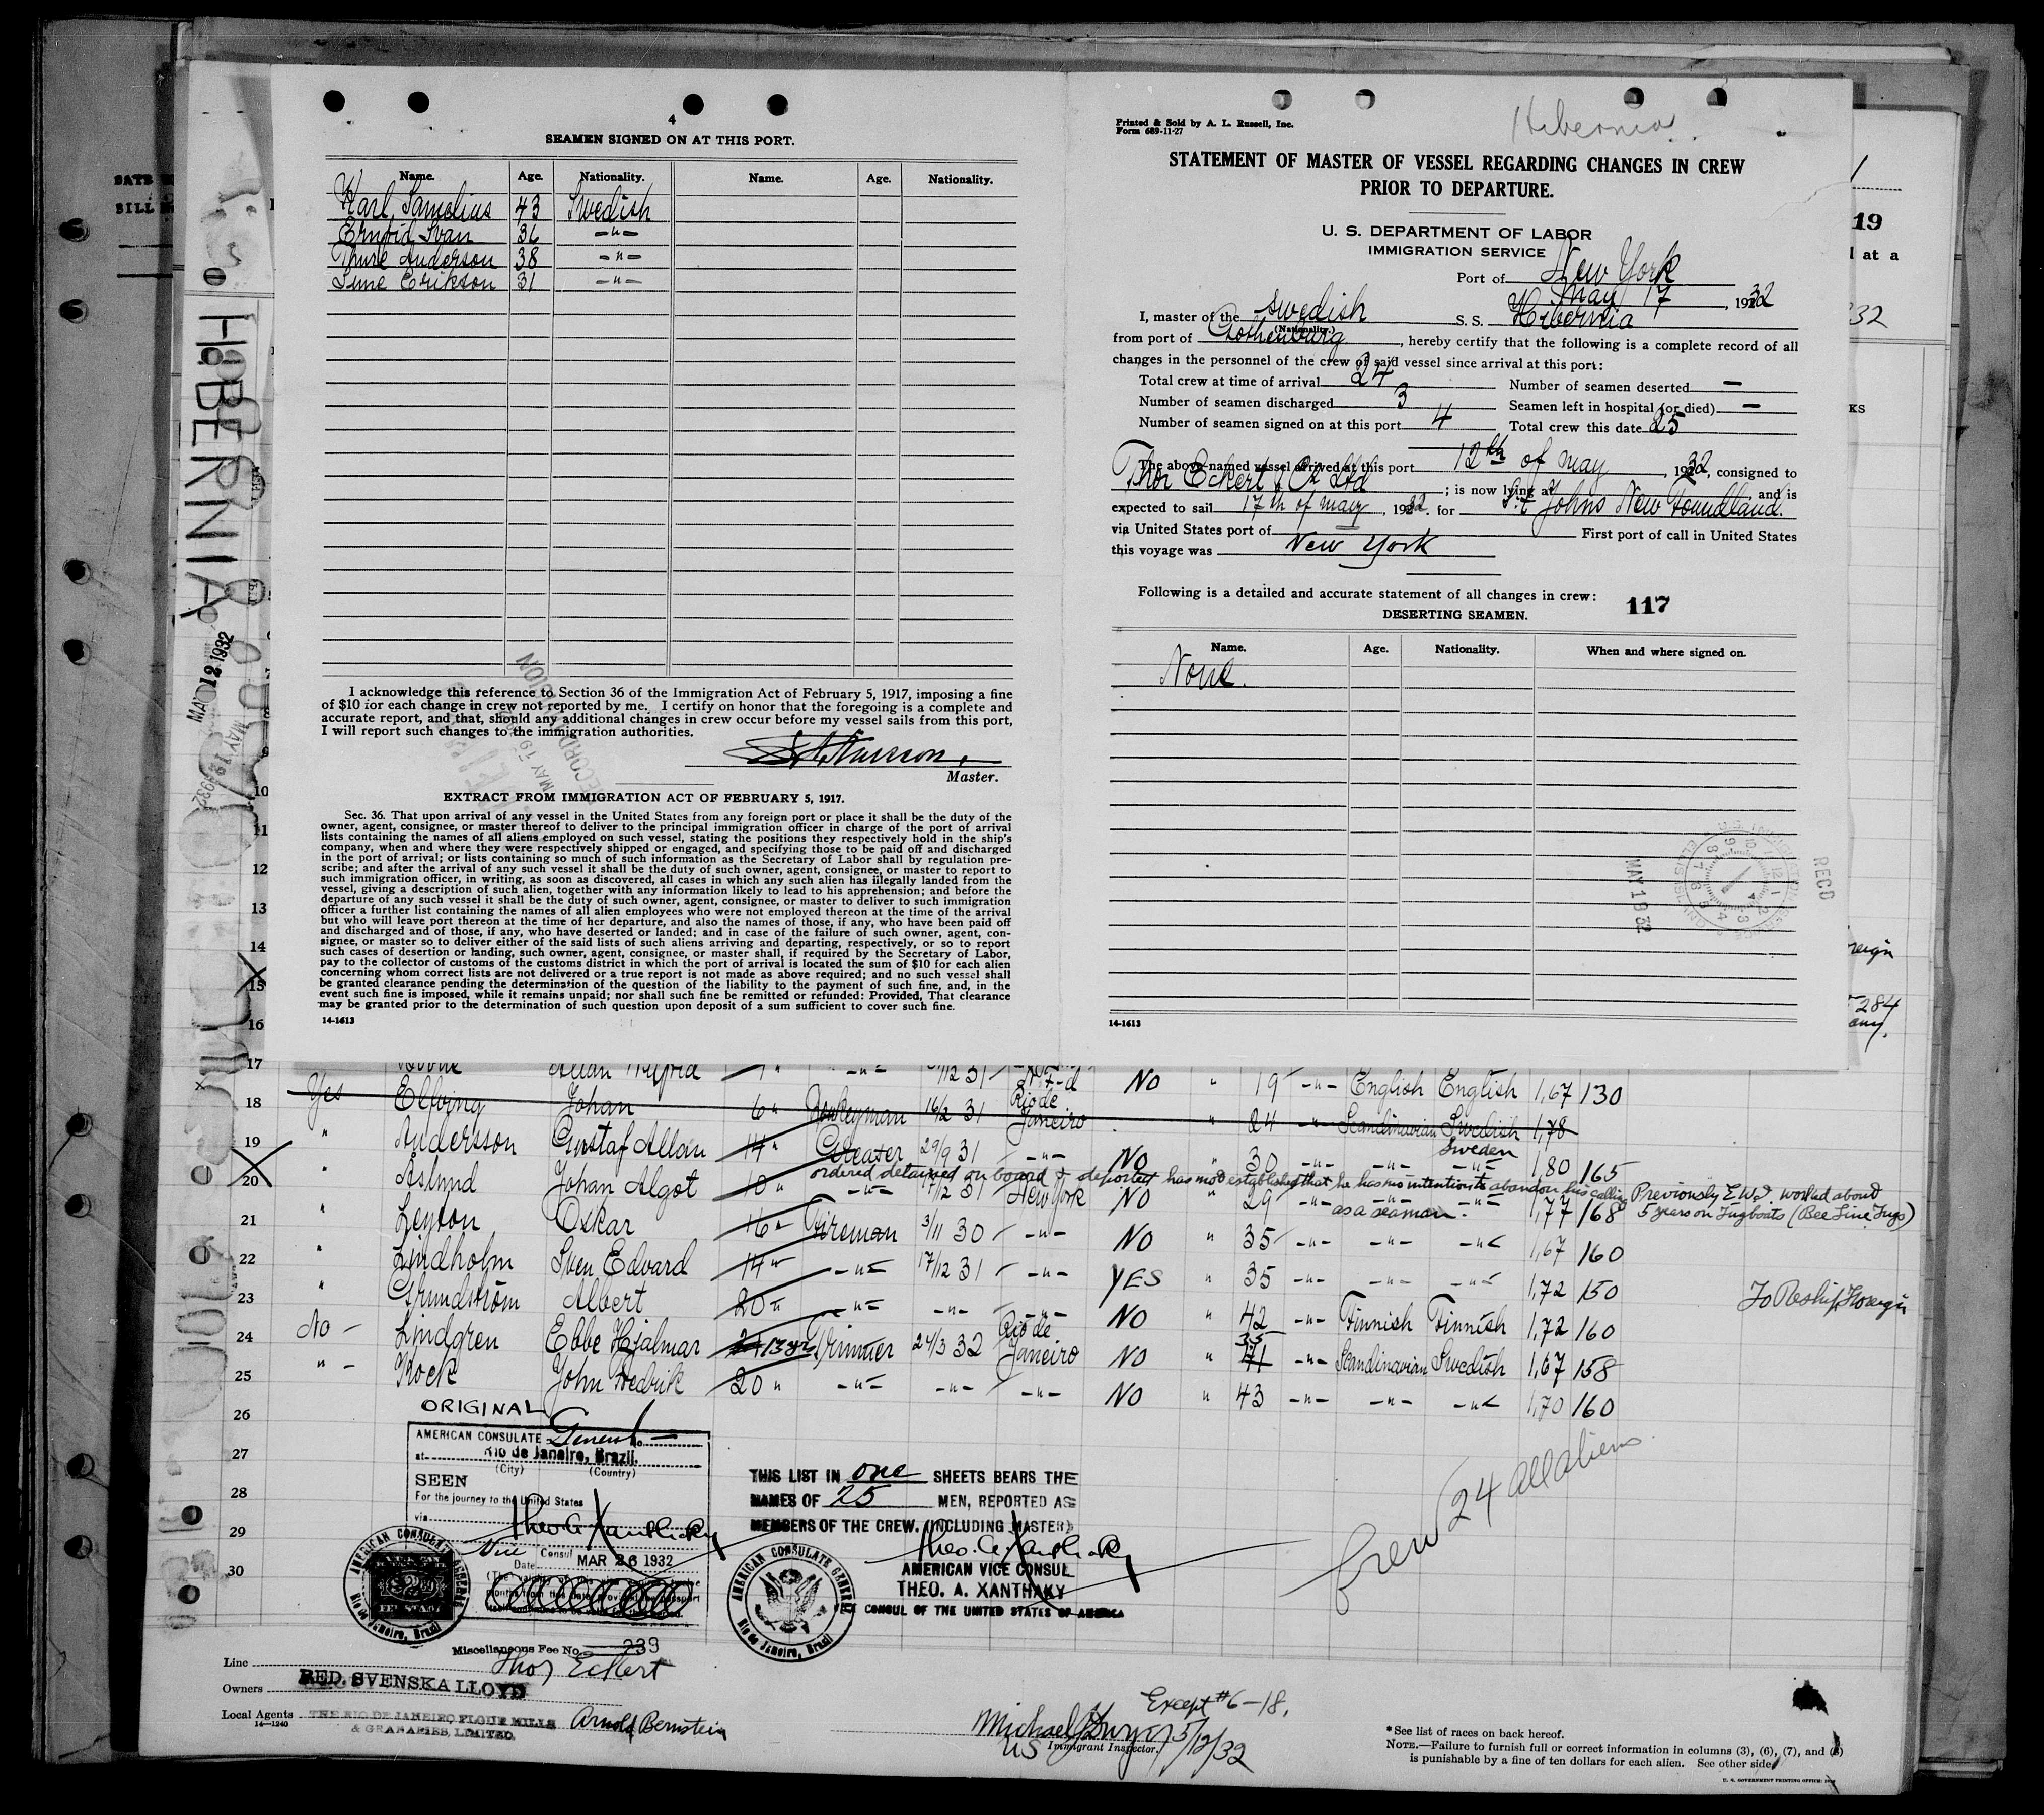 4
SEAMEN SIGNED ON AT THIS PORT.
Name. Age. Nationality. Name. Age. Nationality.
Karl Samelius 43 Swedish
Ivan -"-
Thure Anderson 38 -"-
Erikson 31 -"-
I acknowledge this reference to Section 36 of the Immigration Act of February 5, 1917, imposing a fine
of $10 for each change in crew not reported by me. I certify on honor that the foregoing is a complete and
accurate report, and that, should any additional changes in crew occur before my vessel sails from this port,
I will report such changes to the immigration authorities.
Master.
EXTRACT FROM IMMIGRATION ACT OF FEBRUARY 5, 1917.
Sec. 36. That upon arrival of any vessel in the United States from any foreign port or place it shall be the duty of the
owner, agent, consignee, or master thereof to deliver to the principal immigration officer in charge of the port of arrival
lists containing the names of all aliens employed on such vessel, stating the positions they respectively hold in the ship's
company, when and where they were respectively shipped or engaged, and specifying those to be paid off and discharged
in the port of arrival; or lists containing so much of such information as the Secretary of Labor shall by regulation pre-
scribe; and after the arrival of any such vessel it shall be the duty of such owner, agent, consignee, or master to report to
such immigration officer, in writing, as soon as discovered, all cases in which any such alien has illegally landed from the
vessel, giving a description of such alien, together with any information likely to lead to his apprehension; and before the
departure of any such vessel it shall be the duty of such owner, agent, consignee, or master to deliver to such immigration
officer a further list containing the names of all alien employees who were not employed thereon at the time of the arrival
but who will leave port thereon at the time of her departure, and also the names of those, if any, who have been paid off
and discharged and of those, if any, who have deserted or landed; and in case of the failure of such owner, agent, con-
signee, or master so to deliver either of the said lists of such aliens arriving and departing, respectively, or so to report
such cases of desertion or landing, such owner, agent, consignee, or master shall, if required by the Secretary of Labor,
pay to the collector of customs of the customs district in which the port of arrival is located the sum of $10 for each alien
concerning whom correct lists are not delivered or a true report is not made as above required; and no such vessel shall
be granted clearance pending the determination of the question of the liability to the payment of such fine, and, in the
event such fine is imposed, while it remains unpaid; nor shall such fine be remitted or refunded: Provided, That clearance
may be granted prior to the determination of such question upon deposit of a sum sufficient to cover such fine.
14-1613
Printed & Sold by A. L. Russell, Inc.
Form 689-11-27
Hibernia
STATEMENT OF MASTER OF VESSEL REGARDING CHANGES IN CREW
PRIOR TO DEPARTURE.
U. S. DEPARTMENT OF LABOR
IMMIGRATION SERVICE
Port of New York
May 17, 1932
I, master of the Swedish S. S. Hibernia
(Nationality.)
from port of Gothenburg, hereby certify that the following is a complete record of all
changes in the personnel of the crew of said vessel since arrival at this port:
Total crew at time of arrival 24 Number of seamen deserted —
Number of seamen discharged 3 Seamen left in hospital (or died) —
Number of seamen signed on at this port 4 Total crew this date 25
The above-named vessel arrived at this port 12th of may, 1932, consigned to
Thor Eckert & Co Ltd; is now lying at , and is
expected to sail 17th of may, 1932. for St Johns New Foundland.
via United States port of First port of call in United States
this voyage was New York
Following is a detailed and accurate statement of all changes in crew: 117
DESERTING SEAMEN.
Name. Age. Nationality. When and where signed on.
None.
RECD
MAY 18 32
14-1613
HIBERNIA
MAY 12 1932
19
at a
32
KS
reign
284
10
11
12
13
14
15
16
17 Allan -"- NO " 19 -"- English English 1,67 130
18 Yes Elfving Johan 6" Donkeyman 16/2 31 Rio de Janeiro " 24 -"- Scandinavian Swedish 1,78
19 " Andersson Gustaf Allan 14" Greaser 29/9 31 -"- NO " 30 -"- -"- Sweden -"- 1,80 165
ordered detained on board & deported has not established that he has no intention to abandon his calling as a seaman.
20 " Åslund Johan Algot 10" -"- 17/12 31 New York NO " 29 -"- -"- -"- 1,77 168
Previously E.W.I. worked about
5 years on Tugboats (Bee Line Tugs)
21 " Leyton Oskar 16" Fireman 3/11 30 -"- NO " 35 -"- -"- -"- 1,67 160
22 " Lindholm Sven Edvard 14" -"- 17/12 31 -"- YES " 35 -"- -"- -"- 1,72 150 To Reship Foreign
23 " Grundström Albert 20" -"- -"- -"- NO " 42 -"- Finnish Finnish 1,72 160
24 No - Lindgren Ebbe Hjalmar Trimmer 24/3 32 Rio de Janeiro NO " 35 -"- Scandinavian Swedish 1,67 158
25 " - Kock John Fredrik 20" -"- -"- -"- NO " 43 -"- -"- -"- 1,70 160
26
27
28
29
30
ORIGINAL
AMERICAN CONSULATE General No.
at Rio de Janeiro, Brazil.
(City) (Country)
SEEN
For the journey to the United States
via
Theo. A. Xanthaky
Vice Consul
Date MAR 26 1932
AMERICAN CONSULATE GENERAL
Rio de Janeiro, Brazil
Miscellaneous Fee No. 239
THIS LIST IN one SHEETS BEARS THE
NAMES OF 25 MEN, REPORTED AS
MEMBERS OF THE CREW. (INCLUDING MASTER)
Theo. A. Xanthaky
AMERICAN VICE CONSUL
THEO. A. XANTHAKY
CONSUL OF THE UNITED STATES OF AMERICA
AMERICAN CONSULATE GENERAL
Rio de Janeiro, Brazil
Crew 24 all aliens
Line Thor Eckert
Owners RED. SVENSKA LLOYD
Local Agents THE RIO DE JANEIRO FLOUR MILLS
& GRANARIES, LIMITED. Arnold Bernstein
14—1240
Except #6-18.
Michael 5/12/32
US Immigrant Inspector.
*See list of races on back hereof.
NOTE.—Failure to furnish full or correct information in columns (3), (6), (7), and (8)
is punishable by a fine of ten dollars for each alien. See other side.
U. S. GOVERNMENT PRINTING OFFICE